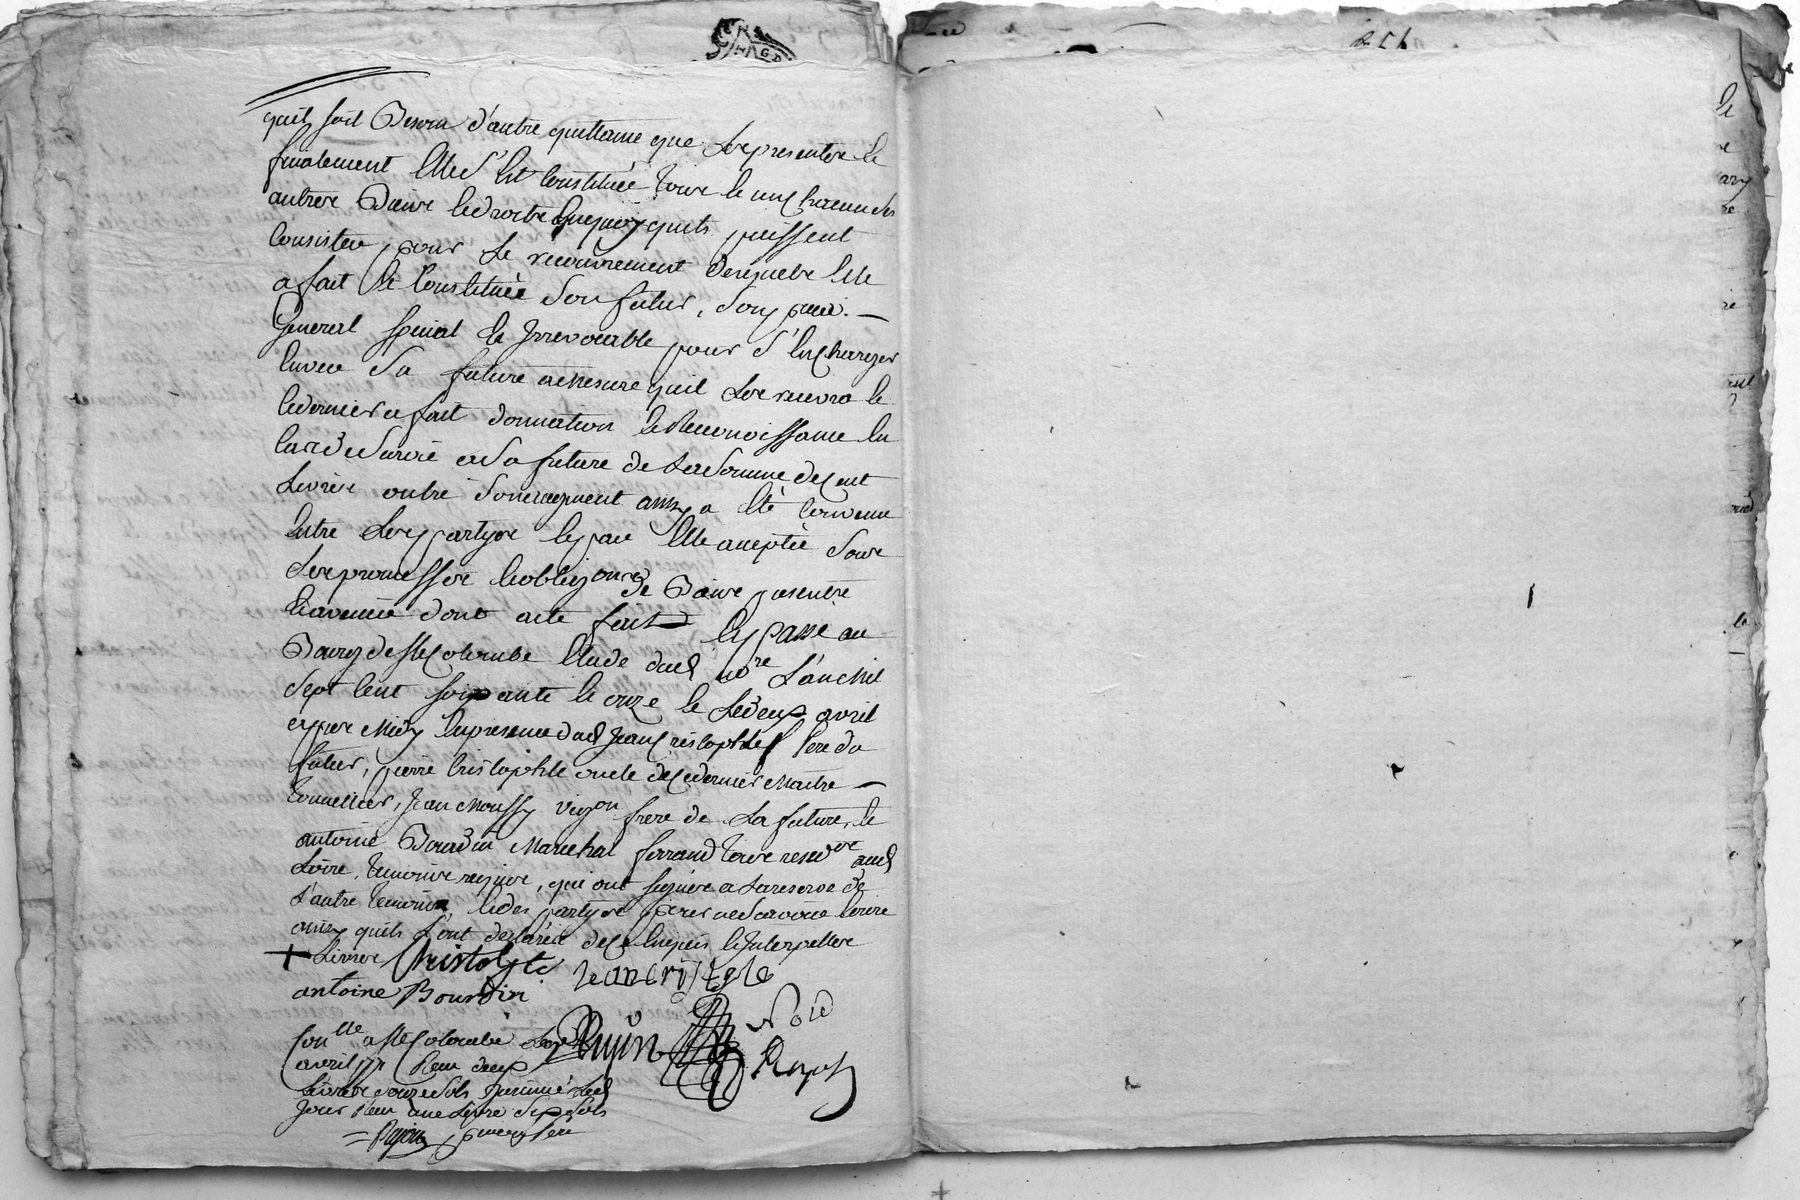 quil soit Besoin d'autre quittance que Les presentes et
finalement Elle S'est Constituée Tous et un chacun ses
autres Biens et droits En quoy quils puissent
Consister, pour Le recouvrement desquels Elle
a fait et Constitué Son futur, Son proc. —
General special et Irrevocable pour S'en Charger
Envers Sa future a mesure quil Les recevra et
ce dernier a fait donnation et Reconoissance En
Cas de Survie a Sa future de La Somme de Cent
Livres outre Son augment ainsy a Eté Convenu
Entre Les partyes et par Elle accepté Sous
Les promesses et obligons de Biens presents
Et avenir dont acte fait Et passé au
Bourg de Ste Colombe Etude dud nore L'an Mil
Sept Cent Soixante et onze et Le deux avril
apres Midy En presence dud Jean Cristophle Pere du
futur, pierre Cristophle oncle de Ce dernier Maitre —
Tonnellier, Jean Moussy vigon frere de La future, et
antoine Bourdin Marechal ferrand Tous resid
Loire, Temoins requis, qui ont signés a La reserve de
L'autre temoin, Et des partyes pour ne Scavoir Ecrire
ainsy quils L'ont declaré de Ce Enquis et Interpellés
+ Livres Christophle Jean Cristofle
antoine Bourdin
Conlle a Ste Colombe Le
avril 1771 Reçu deux
Livres douze Sols Insinué Led
Jour Reçu une Livre Six Sols